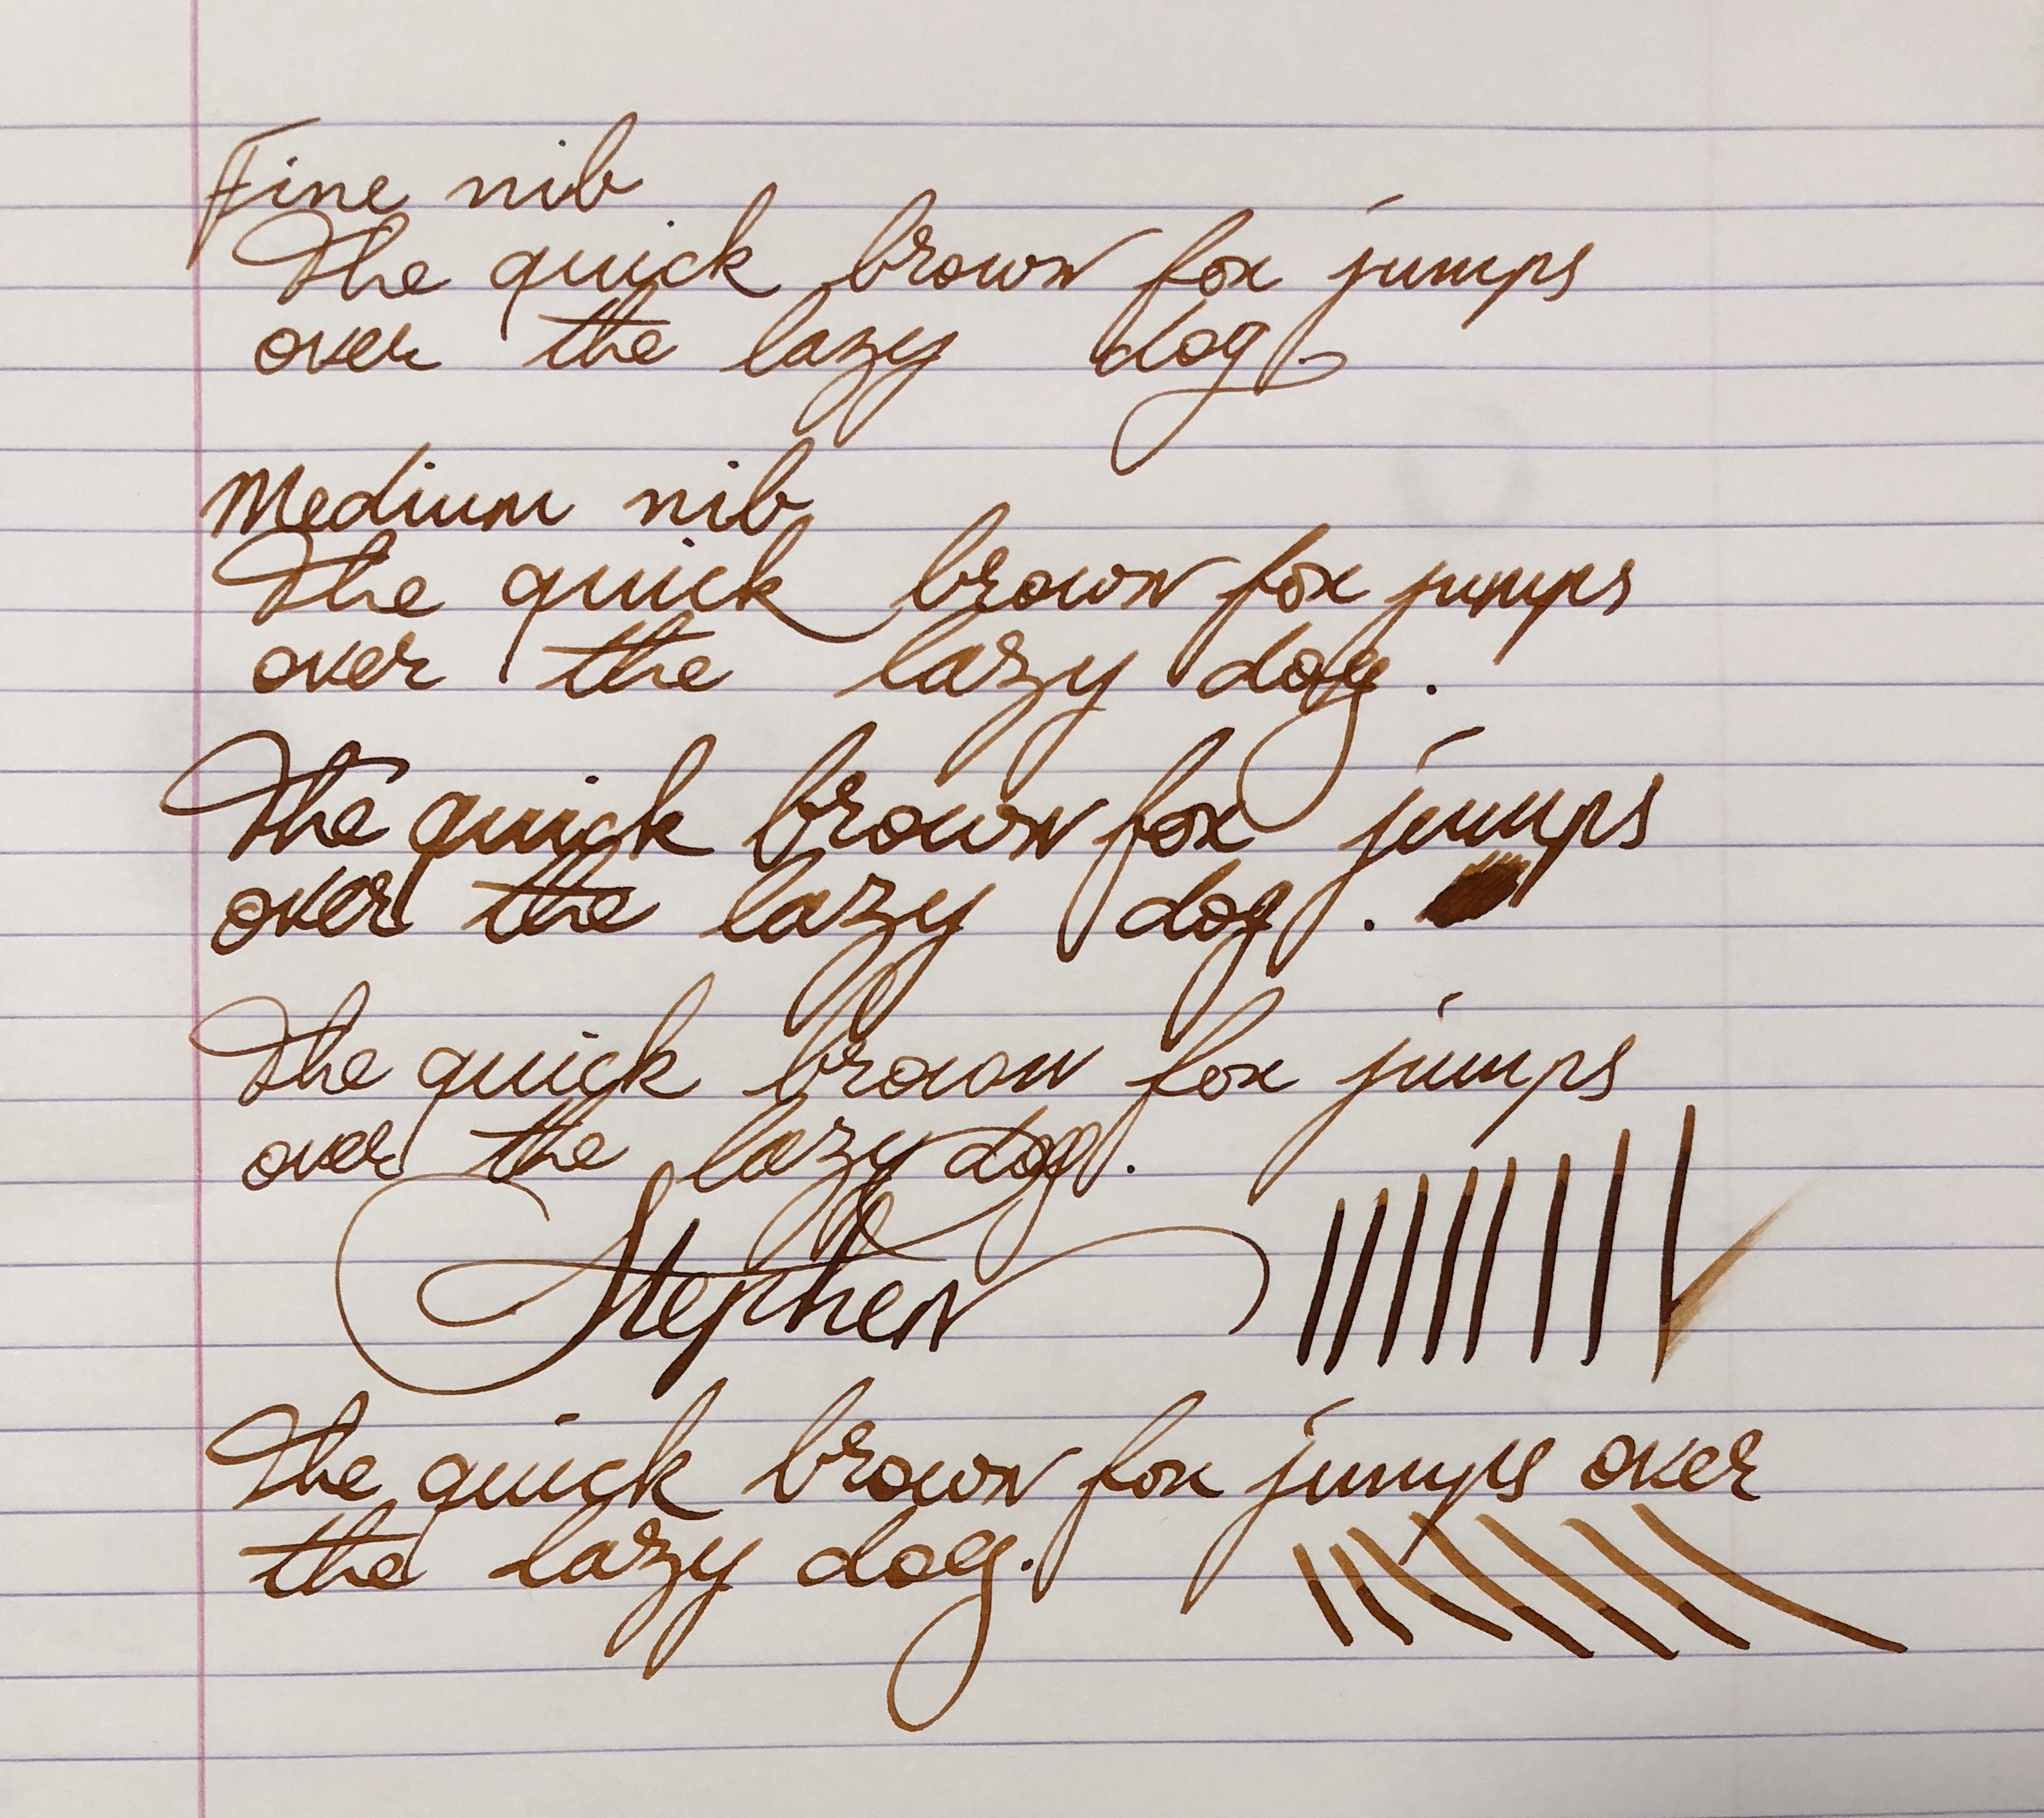 Fine nib
The quick brown fox jumps
over the lazy dog.
Medium nib
The quick brown fox jumps
over the lazy dog.
The quick brown fox jumps
over the lazy dog.
The quick brown fox jumps
over the lazy dog.
Stephen
The quick brown fox jumps over
the lazy dog.